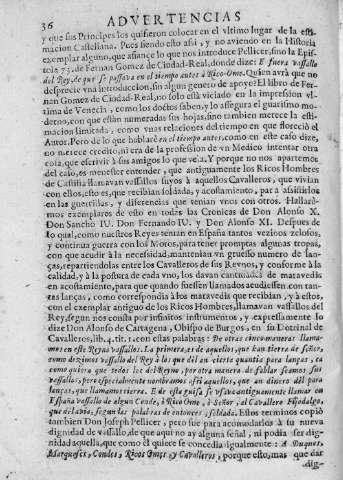 36 ADVERTENCIAS
y que sus Principes los quisieron colocar en el vltimo lugar de la esti-
macion Castellana. Pues siendo esto assi, y no aviendo en la Historia
exemplar alguno, que afiance lo que nos introduce Pellicer, sino la Epis-
tola 75. de Fernan Gomez de Ciudad-Real, donde dize: E fuera vassallo
del Rey, de que se passava en el tiempo antes à Rico-Ome. Quien avrà que no
desprecie vna introduccion, sin algun genero de apoyo? El libro de Fer-
nan Gomez de Ciudad-Real, no solo està viciado en la impression vl-
tima de Venecia, como los doctos saben, y lo assegura el guarismo mo-
derno, con que estàn numeradas sus hojas, sino tambien merece la esti-
macion limitada, como vnas relaciones del tiempo en que floreciò el
Autor. Pero de lo que hablare en el tiempo antes, como en este caso dize,
no merece credito, ni era de la profession de vn Medico intentar otra
cosa, que escrivir à sus amigos lo que veìa. Y porque no nos apartemos
del caso, es menester entender, que antiguamente los Ricos Hombres
de Castilla llamavan vassallos suyos à aquellos Cavalleros, que vivian
con ellos, esto es, que recibian soldada, y acostamiento, par a assistirlos
en las guerrillas, y diferencias que tenian vnos con otros. Hallarè-
mos exemplares de esto en todas las Cronicas de Don Alonso X.
Don Sancho IV. Don Fernando IV. y Don Alonso XI. Despues de
lo qual, como nuestros Reyes tenian en España tantos vezinos zelosos,
y continua guerra con los Moros, para tener promptas algunas tropas,
con que acudir à la necessidad, mantenian vn gruesso numero de lan-
ças, repartiendolas entre los Cavalleros de sus Reynos, y conforme à la
calidad, y à la postura de cada vno, los davan cantidad de maravedis
en acostamiento, para que quando fuessen llamados acudiessen con tan-
tas lanças, como correspondia à los maravedis que recibian, y à estos,
con el exemplar antiguo de los Ricos Hombres, llamavan vassallos del
Rey, segun nos consta por infinitos instrumentos, y expressamente lo
dize Don Alonso de Cartagena, Obispo de Burgos, en su Dotrinal de
Cavalleros, lib. 4. tit. 1. con estas palabras: De otras cinco maneras llama-
mos en este Reyno vassallos. La primera, es de aquellos, que han tierra de señor,
como dezimos vassallos del Rey à los que dèl an cierta quantia para lanças, ca
como quiera que todos los del Reyno, por otra manera de fablar seamos sus
vassallos, pero especialmente nombramos assi aquellos, que an dinero dèl para
lanças, que llamamos tierra. E de esta guisa se vsava antiguamente llamar en
España vassallo de algun Conde, ò Rico-Ome, ò Señor, al Cavallero Fijodalgo,
que del avia, segun las palabras de entonces, soldada. Estos terminos copiò
tambien Don Joseph Pellicer, pero fue para acomodarlos à su nueva
dignidad de vassallo, de que aqui no ay alguna señal, ni podia ser dig-
nidad aquella, que como èl quiere se concedia igualmente: A Duques,
Marqueses, Condes, Ricos Omes, y Cavalleros, porque esto, mas que dar
dig-